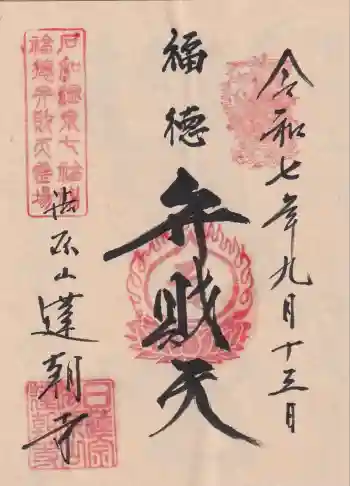 令和七年九月十三日
福徳
弁財天
石和温泉七福神
福徳弁財天霊場
山蓮朝寺
日蓮宗
蓮朝寺